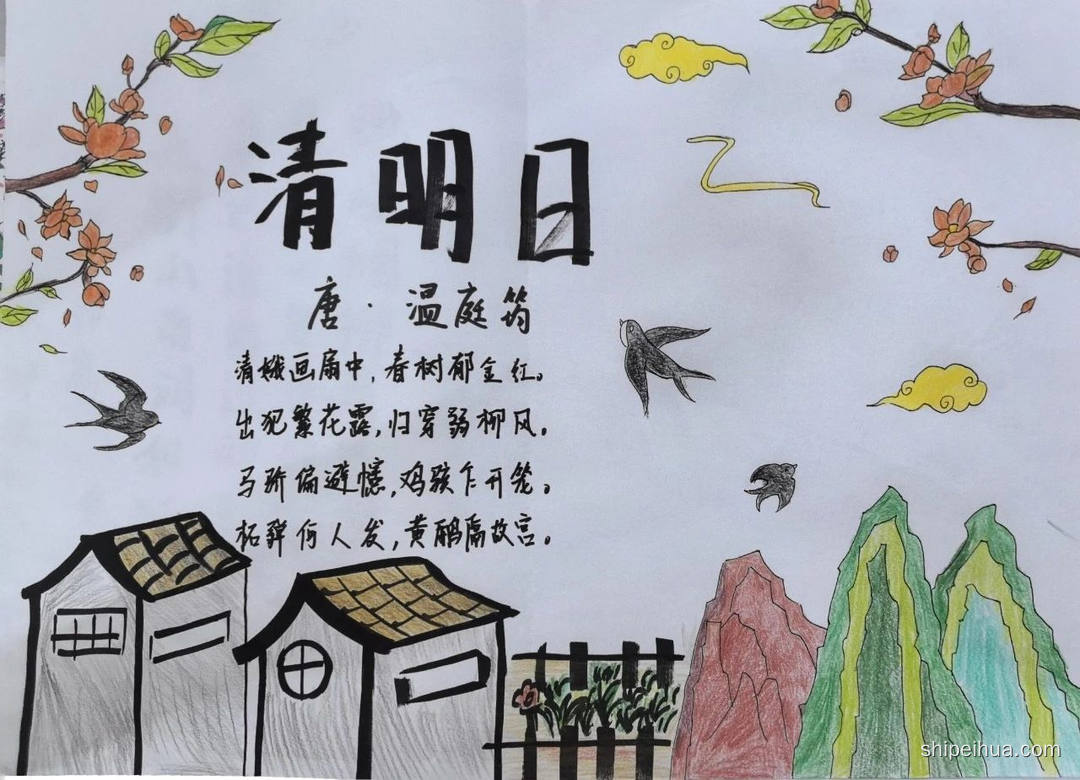 清明日
唐·温庭筠
清娥画扇中,春树郁金红。
出犯繁花露,归穿弱柳风。
马骄偏避幰,鸡骇乍开笼。
柘弹何人发,黄鹂隔故宫。
shipeihua.com